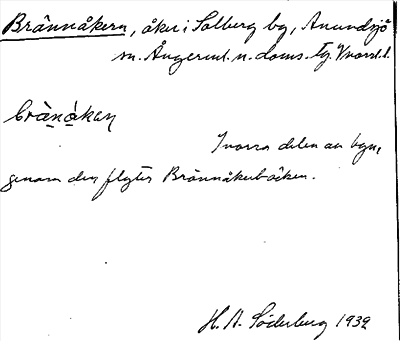 Brännåkern, åker i Solberg by, Anundsjö
sn. Ångerml. n. doms. tg. Vnorrl. l.
brànákaɲ
Norra delen av byn,
genom den flyter Brännåkerbäcken.
H. A. Söderberg 1932